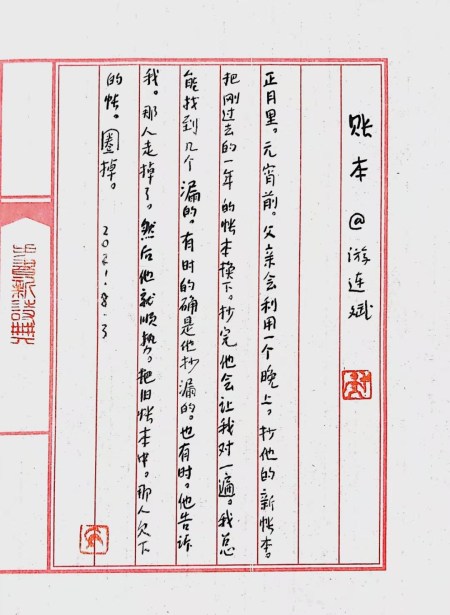 账本 @游连斌
正月里。元宵前。父亲会利用一个晚上。抄他的新帐本。
把刚过去的一年的帐本换下。抄完他会让我对一遍。我总
能找到几个漏的。有时的确是他抄漏的。也有时。他告诉
我。那人走掉了。然后他就顺势。把旧帐本中。那人欠下
的帐。圈掉。
2021.8.3